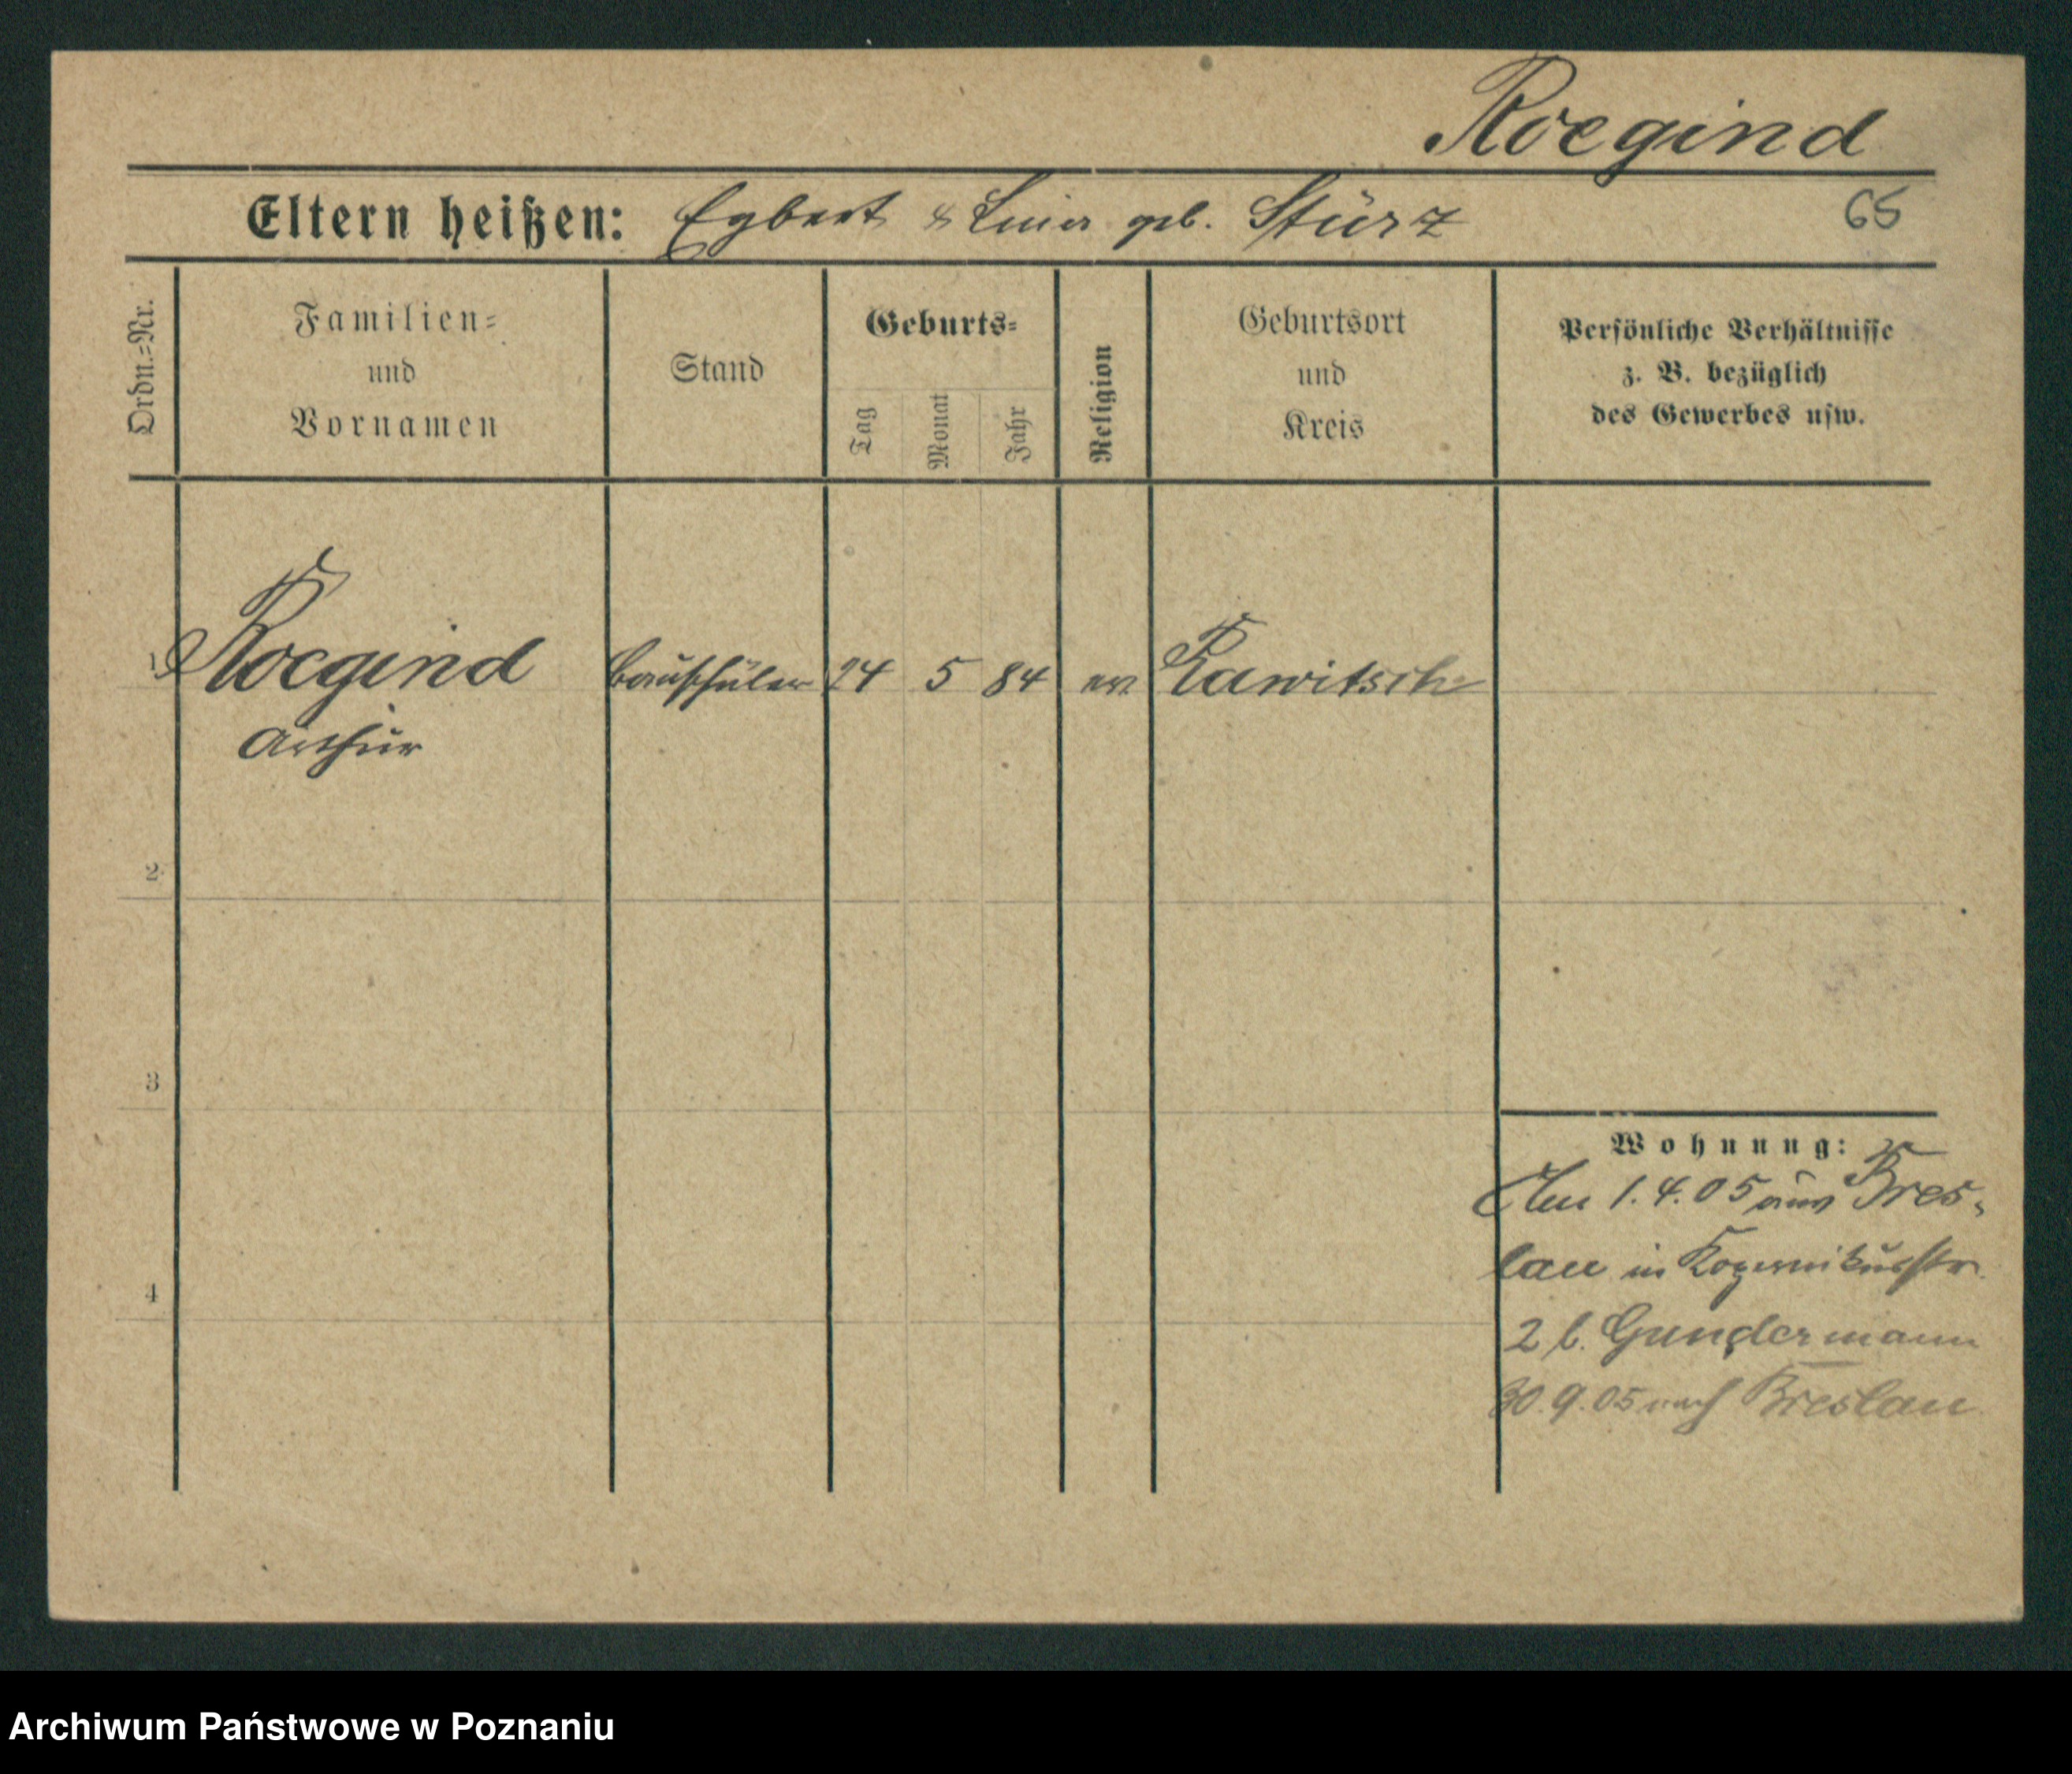 Roegind
Eltern heißen: Egbert & geb. Stürz
65
Ordn.=Nr.
Familien=
und
Vornamen
Stand
Geburts=
Tag
Monat
Jahr
Religion
Geburtsort
und
Kreis
Persönliche Verhältnisse
z. B. bezüglich
des Gewerbes usw.
1 Roegind Bauschüler 24 5 84 ev Rawitsch
Arthur
2
3
4
Wohnung:
1.4.05 aus Bres-
lau in Kopernikusstr.
2 b. Gundermann
30.9.05 nach Breslau
Archiwum Państwowe w Poznaniu